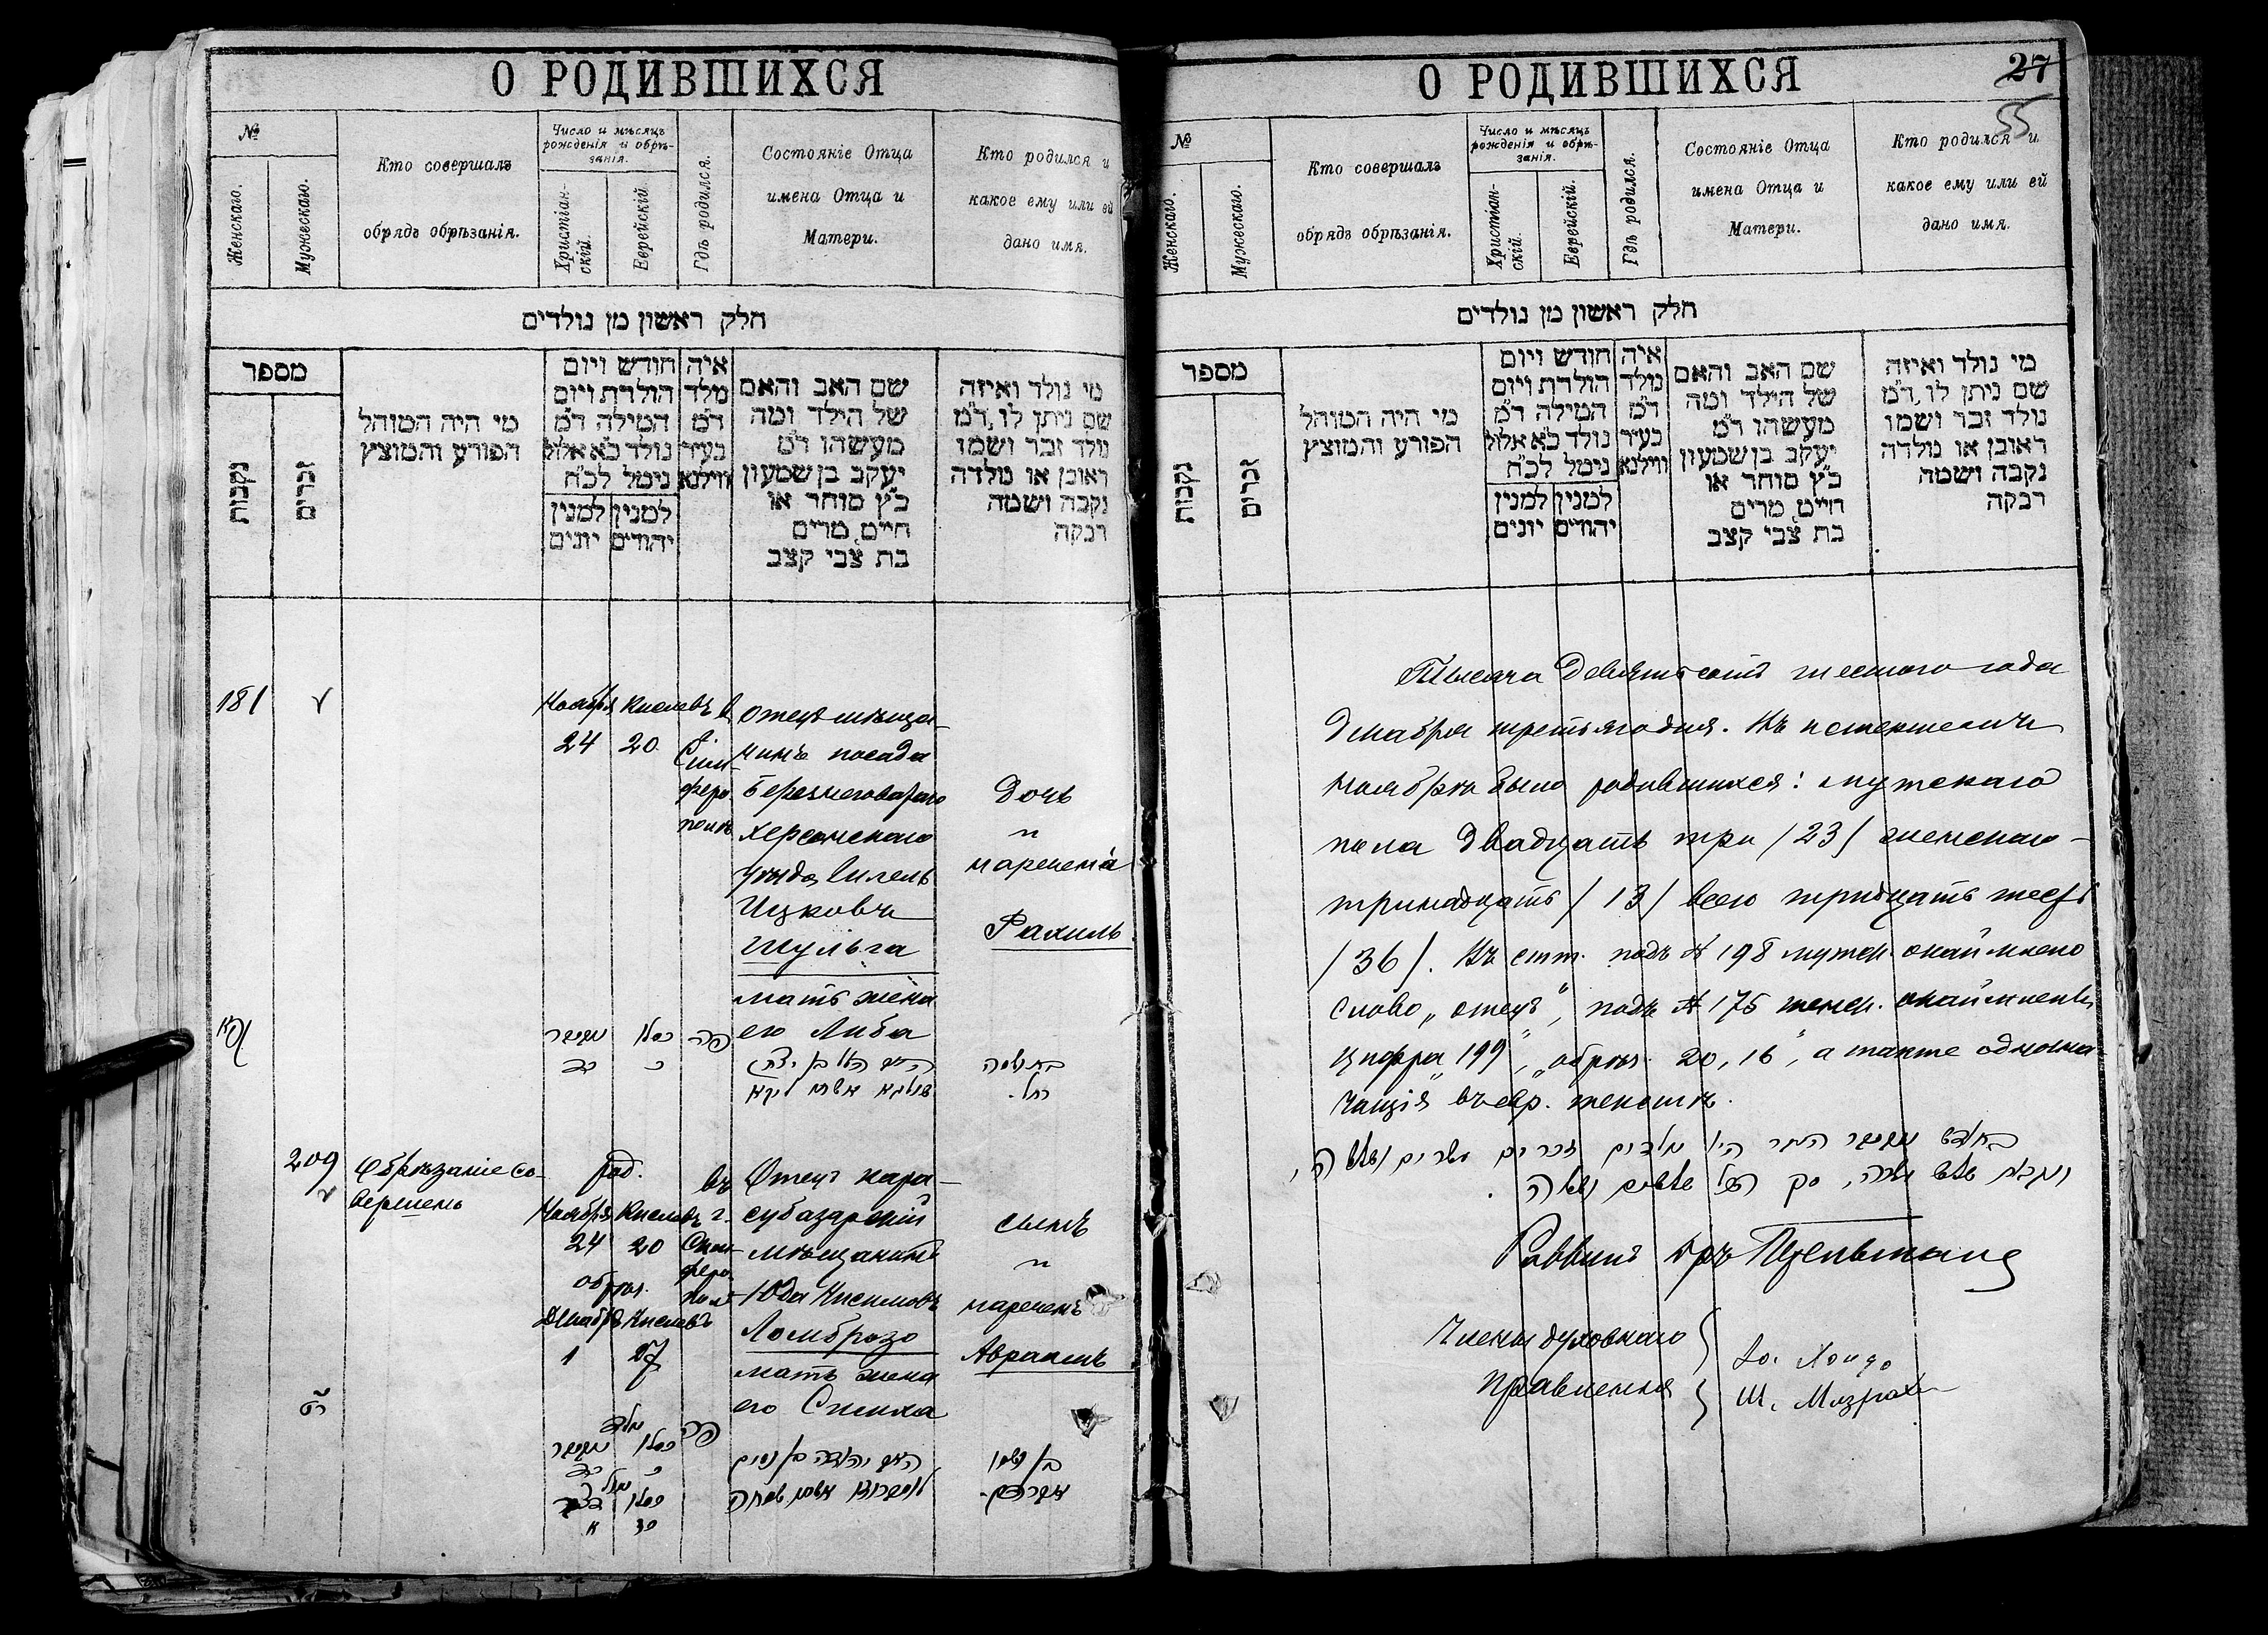 О РОДИВШИХСЯ
№
Женскаго.
Мужескаго.
Кто совершалъ
обрядъ обрѣзанія.
Число и мѣсяцъ
рожденія и обрѣ-
занія.
Христіан-
скій.
Еврейскій
Гдѣ родился.
Состояніе Отца
имена Отца и
Матери.
Кто родился и
какое ему или ей
дано имя.
חלק ראשון מן נולדים
מספר
נקבות
זכרים
מי היה המוהל
הפורע והמוצץ
חודש ויום
הולדת ויום
המילה ד״מ
נולד כ׳א אלול
נימל לכ״ח
למנין למנין
יהודים יונים
איה
מלד
ד״מ
בעיר
ווילנא
שם האב והאם
של הילד ומה
מעשהו ד״מ
יעקב בן שמעון
כ״ץ סוחר או
חייט, מרים
בת צבי קצב
מי נולד ואיזה
שם ניתן לו, ד״מ
נולד זכר ושמו
ראובן או נולדה
נקבה ושמה
רבקה
181
Ноября Кислевъ
24 20
в
Сим-
феро-
поли
отецъ мѣща-
нинъ посада
Березнеговатаго
херсонскаго
уѣзда
Ицковъ
Шульга
мать жена
его Либа
Дочь
"
наречена
Рахиль
קפא
נאועמבר כסלו פה
כד כ
בת ושמה
רחל.
209
Обрѣзаніе со-
вершенъ
род.
Ноября Кислевъ
24 20
обрѣз.
Декабря Кислевъ
1 27
въ
г.
Сим-
феро-
пол
Отецъ кара-
субазарскій
мѣщанинъ
Юда Нисимовъ
Ломброзо
мать жена
его Симха
сынъ
"
нареченъ
Авраамъ
רט
נולד
נאועמבר כסלו פה
כד כ
נמול
כסלו
א כז
האב יהודה בן נסים
לאמברוזא אמו שמחה
בן ושמו
אברהם.
О РОДИВШИХСЯ
27
55
№
Женскаго.
Мужескаго.
Кто совершалъ
обрядъ обрѣзанія.
Число и мѣсяцъ
рожденія и обрѣ-
занія.
Христіан-
скій.
Еврейскій.
Гдѣ родился.
Состояніе Отца
имена Отца и
Матери.
Кто родился и
какое ему или ей
дано имя.
חלק ראשון מן נולדים
מספר
נקבות
זכרים
מי היה המוהל
הפורע והמוצץ
חודש ויום
הולדת ויום
המילה ד״מ
נולד כ׳א אלול
נימל לכ״ח
למנין למנין
יהודים יונים
איה
נולד
ד״מ
בעיר
ווילנא
שם האב והאם
של הילד ומה
מעשהו ד״מ
יעקב בן שמעון
כ״ץ סוחר או
חייט, מרים
בת צבי קצב
מי נולד ואיזה
שם ניתן לו, ד״מ
נולד זכר ושמו
ראובן או נולדה
נקבה ושמה
רבקה
Тысяча Девятьсотъ шестого года
Декабря третьягодня. Въ истекшемъ
ноябрѣ было родившихся: мужскаго
пола двадцать три /23/ женскаго-
тринадцать /13/ всего тридцать шесть
/36/. Въ стт. подъ № 198 мужск. окаймлено
слово „отецъ", подъ № 175 женск. окаймлены
цифра „199", „обрѣз. 20, 16", а также однозна
чащія въ евр. текстѣ.
Раввинъ
Члены духовнаго
Правленія
Ш. Мизрахи